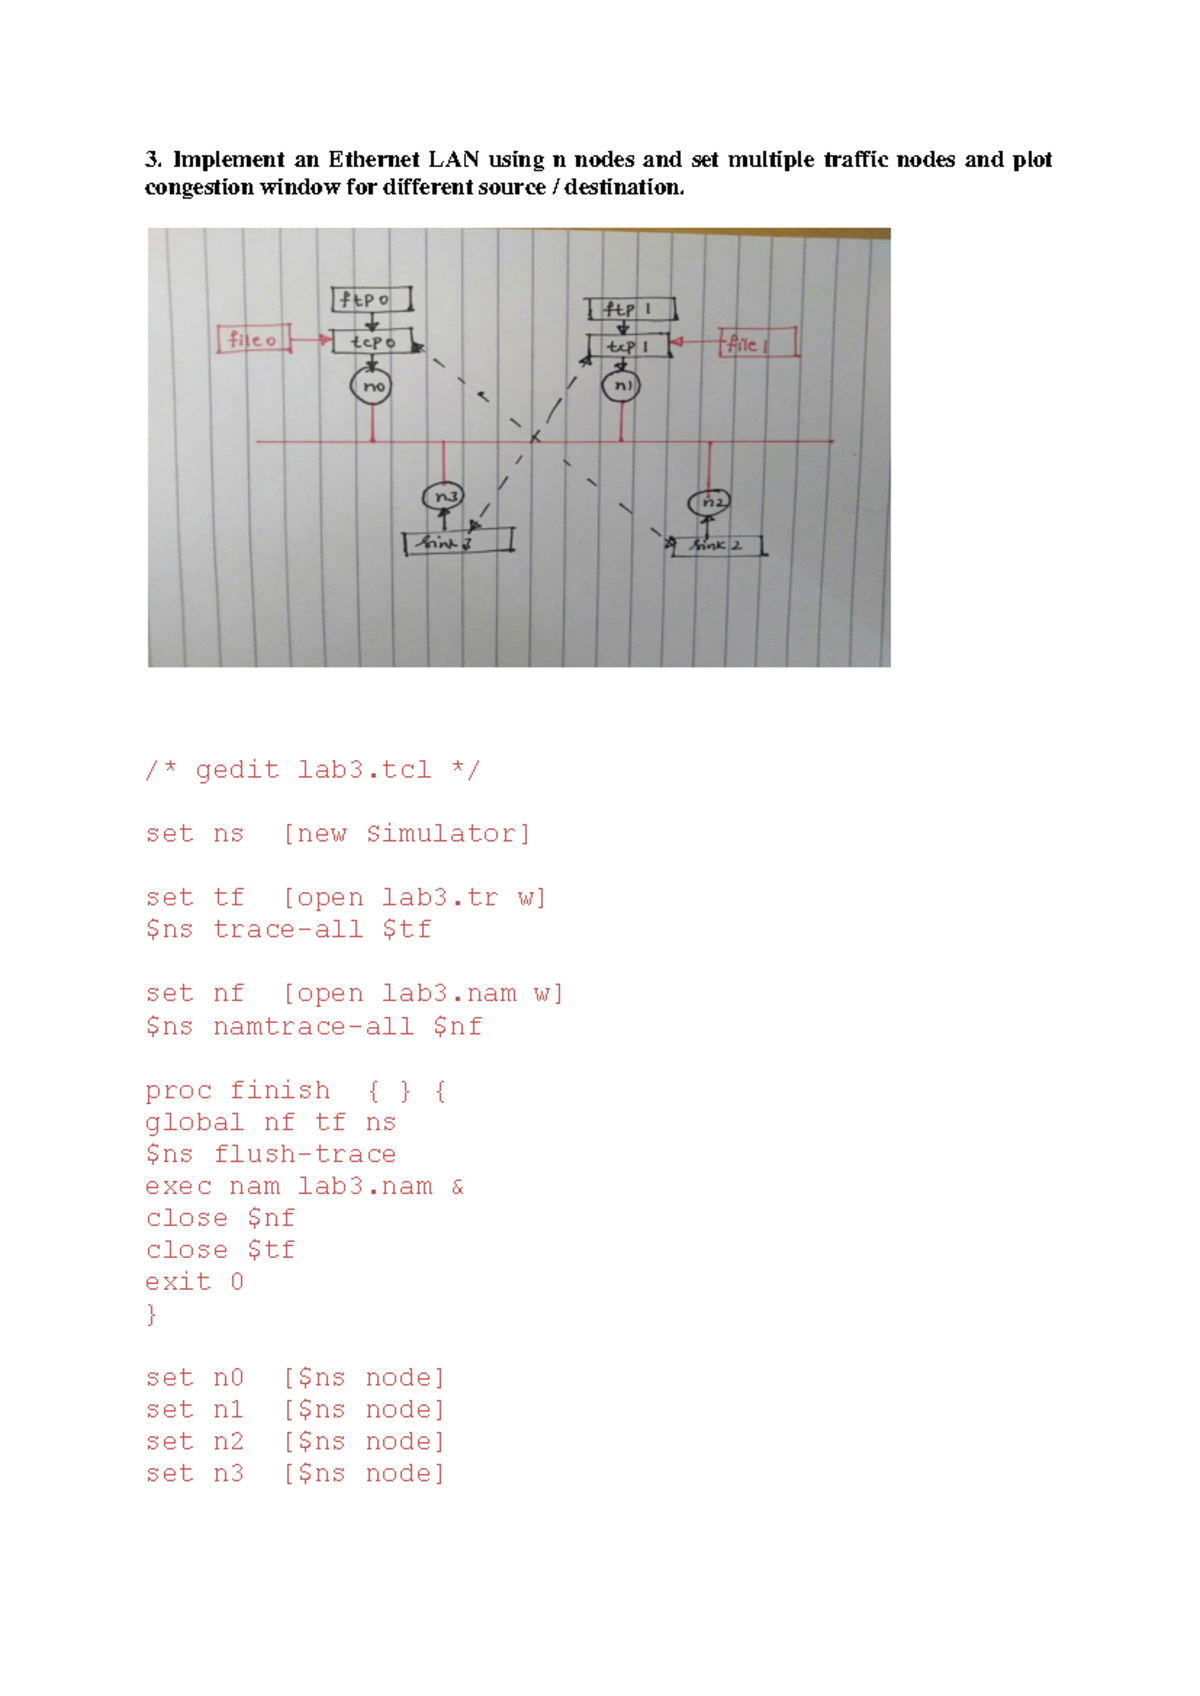 3. Implement an Ethernet LAN using n nodes and set multiple traffic nodes and plot
congestion window for different source / destination.
ftp0
ftp 1
file0
tcp0
tcp 1
file 1
n0
n1
n3
n2
sink 3
sink 2
/* gedit lab3.tcl */
set ns [new Simulator]
set tf [open lab3.tr w]
$ns trace-all $tf
set nf [open lab3.nam w]
$ns namtrace-all $nf
proc finish { } {
global nf tf ns
$ns flush-trace
exec nam lab3.nam &
close $nf
close $tf
exit 0
}
set n0 [$ns node]
set n1 [$ns node]
set n2 [$ns node]
set n3 [$ns node]